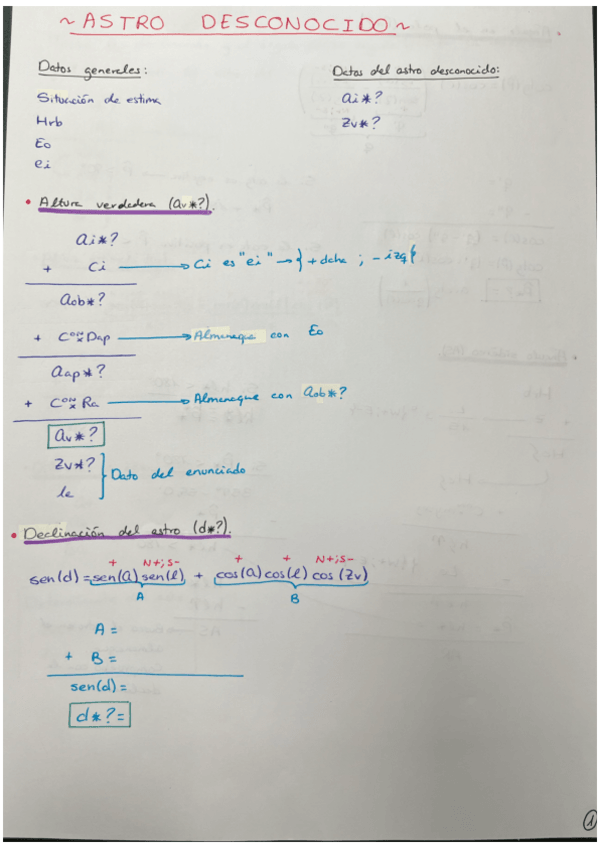 ~ASTRO DESCONOCIDO~
Datos genereles:
Situación de estima
Hrb
Eo
ei
Datos del astro desconocido:
ai*?
Zv*?
• Altura verdedera (av*?).
ai*?
+ Ci → Ci es "ei" → { + dcha ; - izq }
aob*?
+ Conx Dap → Almaneque con Eo
aap*?
+ Conx Ra → Almaneque con aob*?
av*?
Zv*?
le
} Dato del enunciado
• Declinación del astro (d*?).
+ N+;S- + + N+;S-
sen(d) = sen(a) sen(l) + cos(a) cos(l) cos(Zv)
A B
A =
+ B =
sen(d) =
d*? =
1